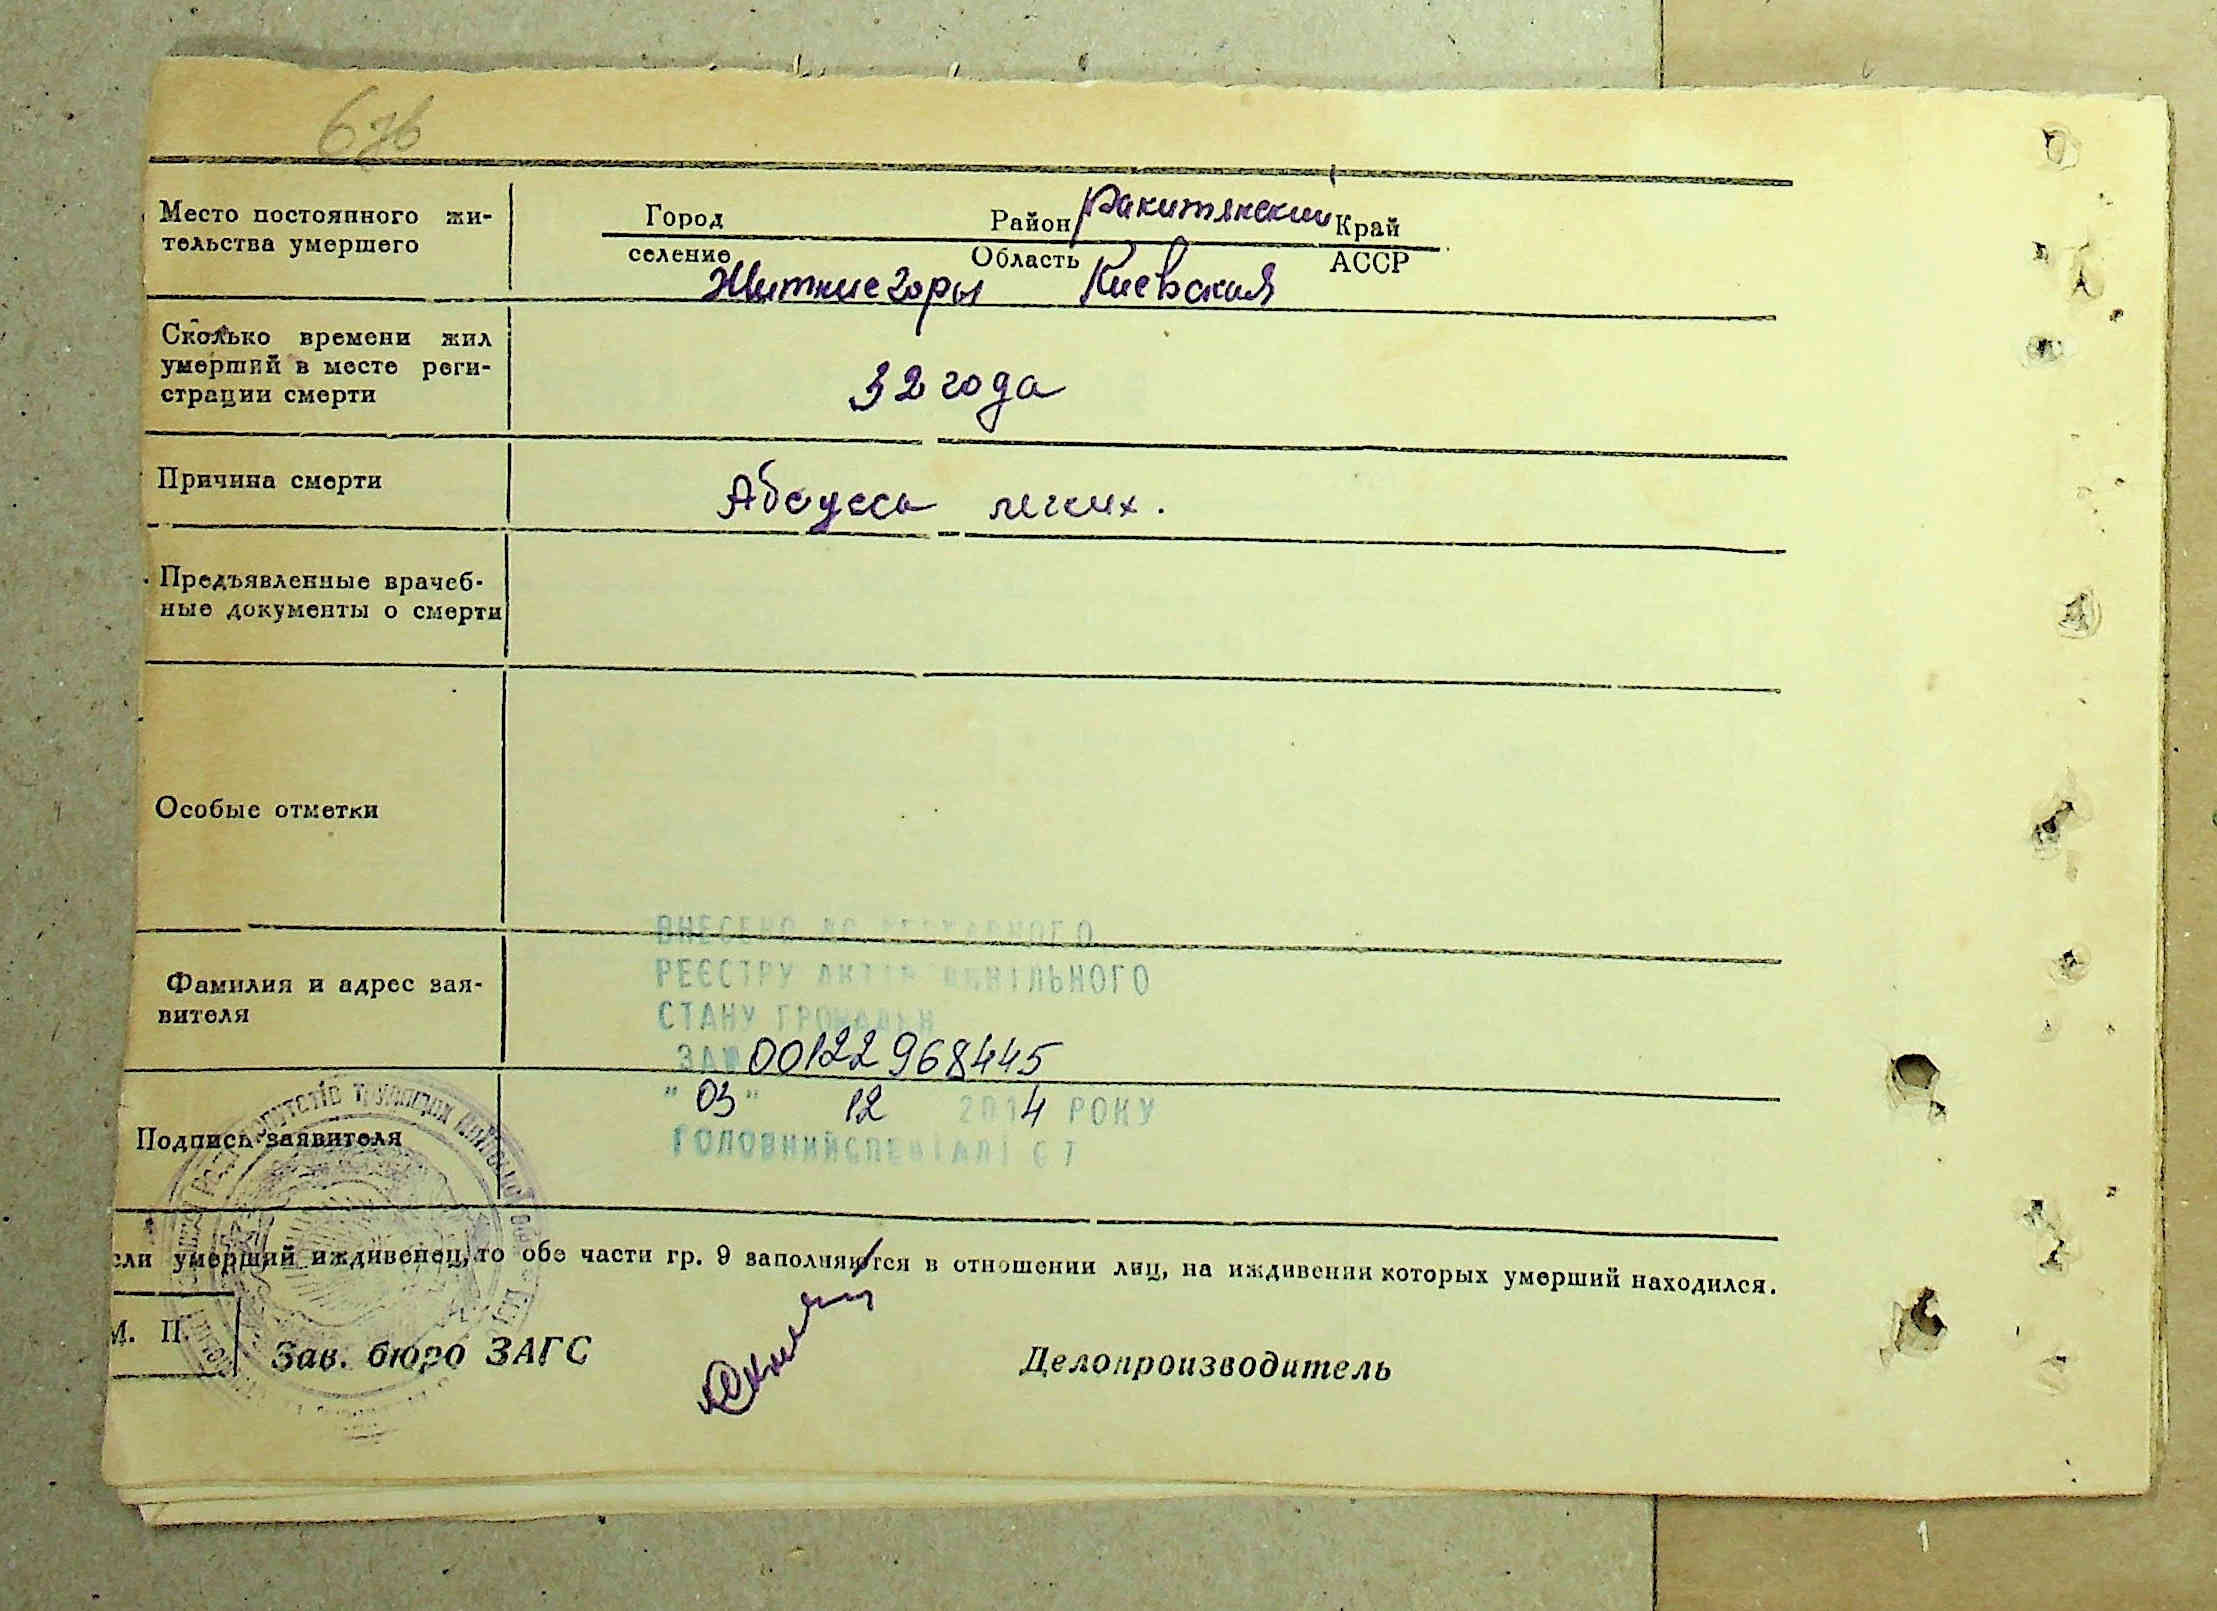 676
Место постоянного жи-
тельства умершего
Город Район Ракитянский Край
селение Область АССР
Житние горы Киевская
Сколько времени жил
умерший в месте реги-
страции смерти
32 года
Причина смерти
Абсцесс легких.
Предъявленные врачеб-
ные документы о смерти
Особые отметки
ВНЕСЕНО ДО ДЕРЖАВНОГО
РЕЄСТРУ АКТІВ ЦИВІЛЬНОГО
СТАНУ ГРОМАДЯН
ЗА № 00122968445
"03" 12 2014 РОКУ
ГОЛОВНИЙ СПЕЦІАЛІСТ
Фамилия и адрес зая-
вителя
Подпись заявителя
сли умерший иждивенец, то обе части гр. 9 заполняются в отношении лиц, на иждивении которых умерший находился.
М. П.
Зав. бюро ЗАГС
Делопроизводитель